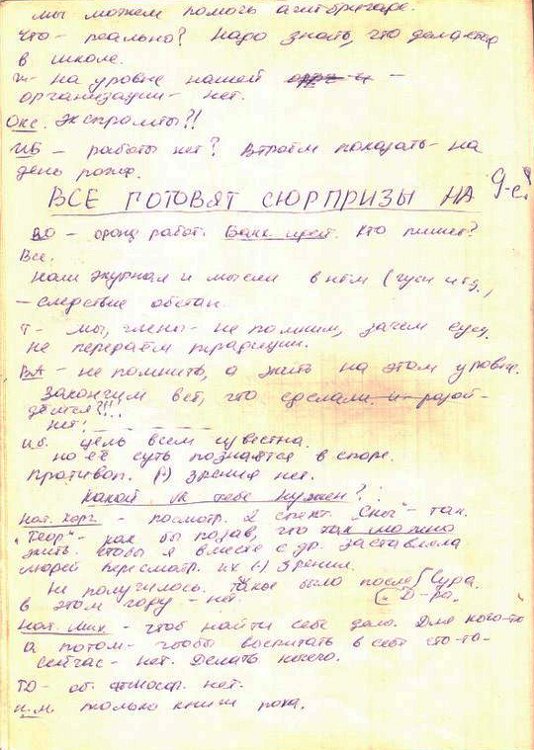 мы можем помочь агитбригаде.
Что - реально? Надо знать, что делается
в школе.
на уровне нашей
организации - нет.
Окс. Экспромты?!
ИБ - работы нет? Втроём показать - на
день рожд.
ВСЕ ГОТОВЯТ СЮРПРИЗЫ НА 9-е!
ВО - орг. работ. Банк идей. Кто пишет?
Все.
Наш журнал и мысли в нём (гуси и т.д.,
- следствие обстан.
Т - мы, члены - не помним, зачем сущ.
не передаём традиции.
ВА - не помнить, а жить на этом уровне.
Закончим вст, что сделали и разой-
дёмся?!!.
нет!
Иб. Цель всем известна.
но её суть познаётся в споре.
Противоп. (•) зрения нет.
Какой тебе нужен?:
Нат. Корг. - посмотр. 2 спект. "Снег" - так.
"Теор" - как бы позав, что так можно
жить. Чтобы я вместе с др. заставляла
людей пересмотр. их (•) зрения.
Не получилось. Такое было после
в этом году - нет.
Нат. Мих - чтоб найти себе дело. Для кого-то
а потом - чтобы воспитать в себе что-то-
сейчас - нет. Делать нечего.
ТО - об. атмосф. нет.
Н.М. только книги пока.